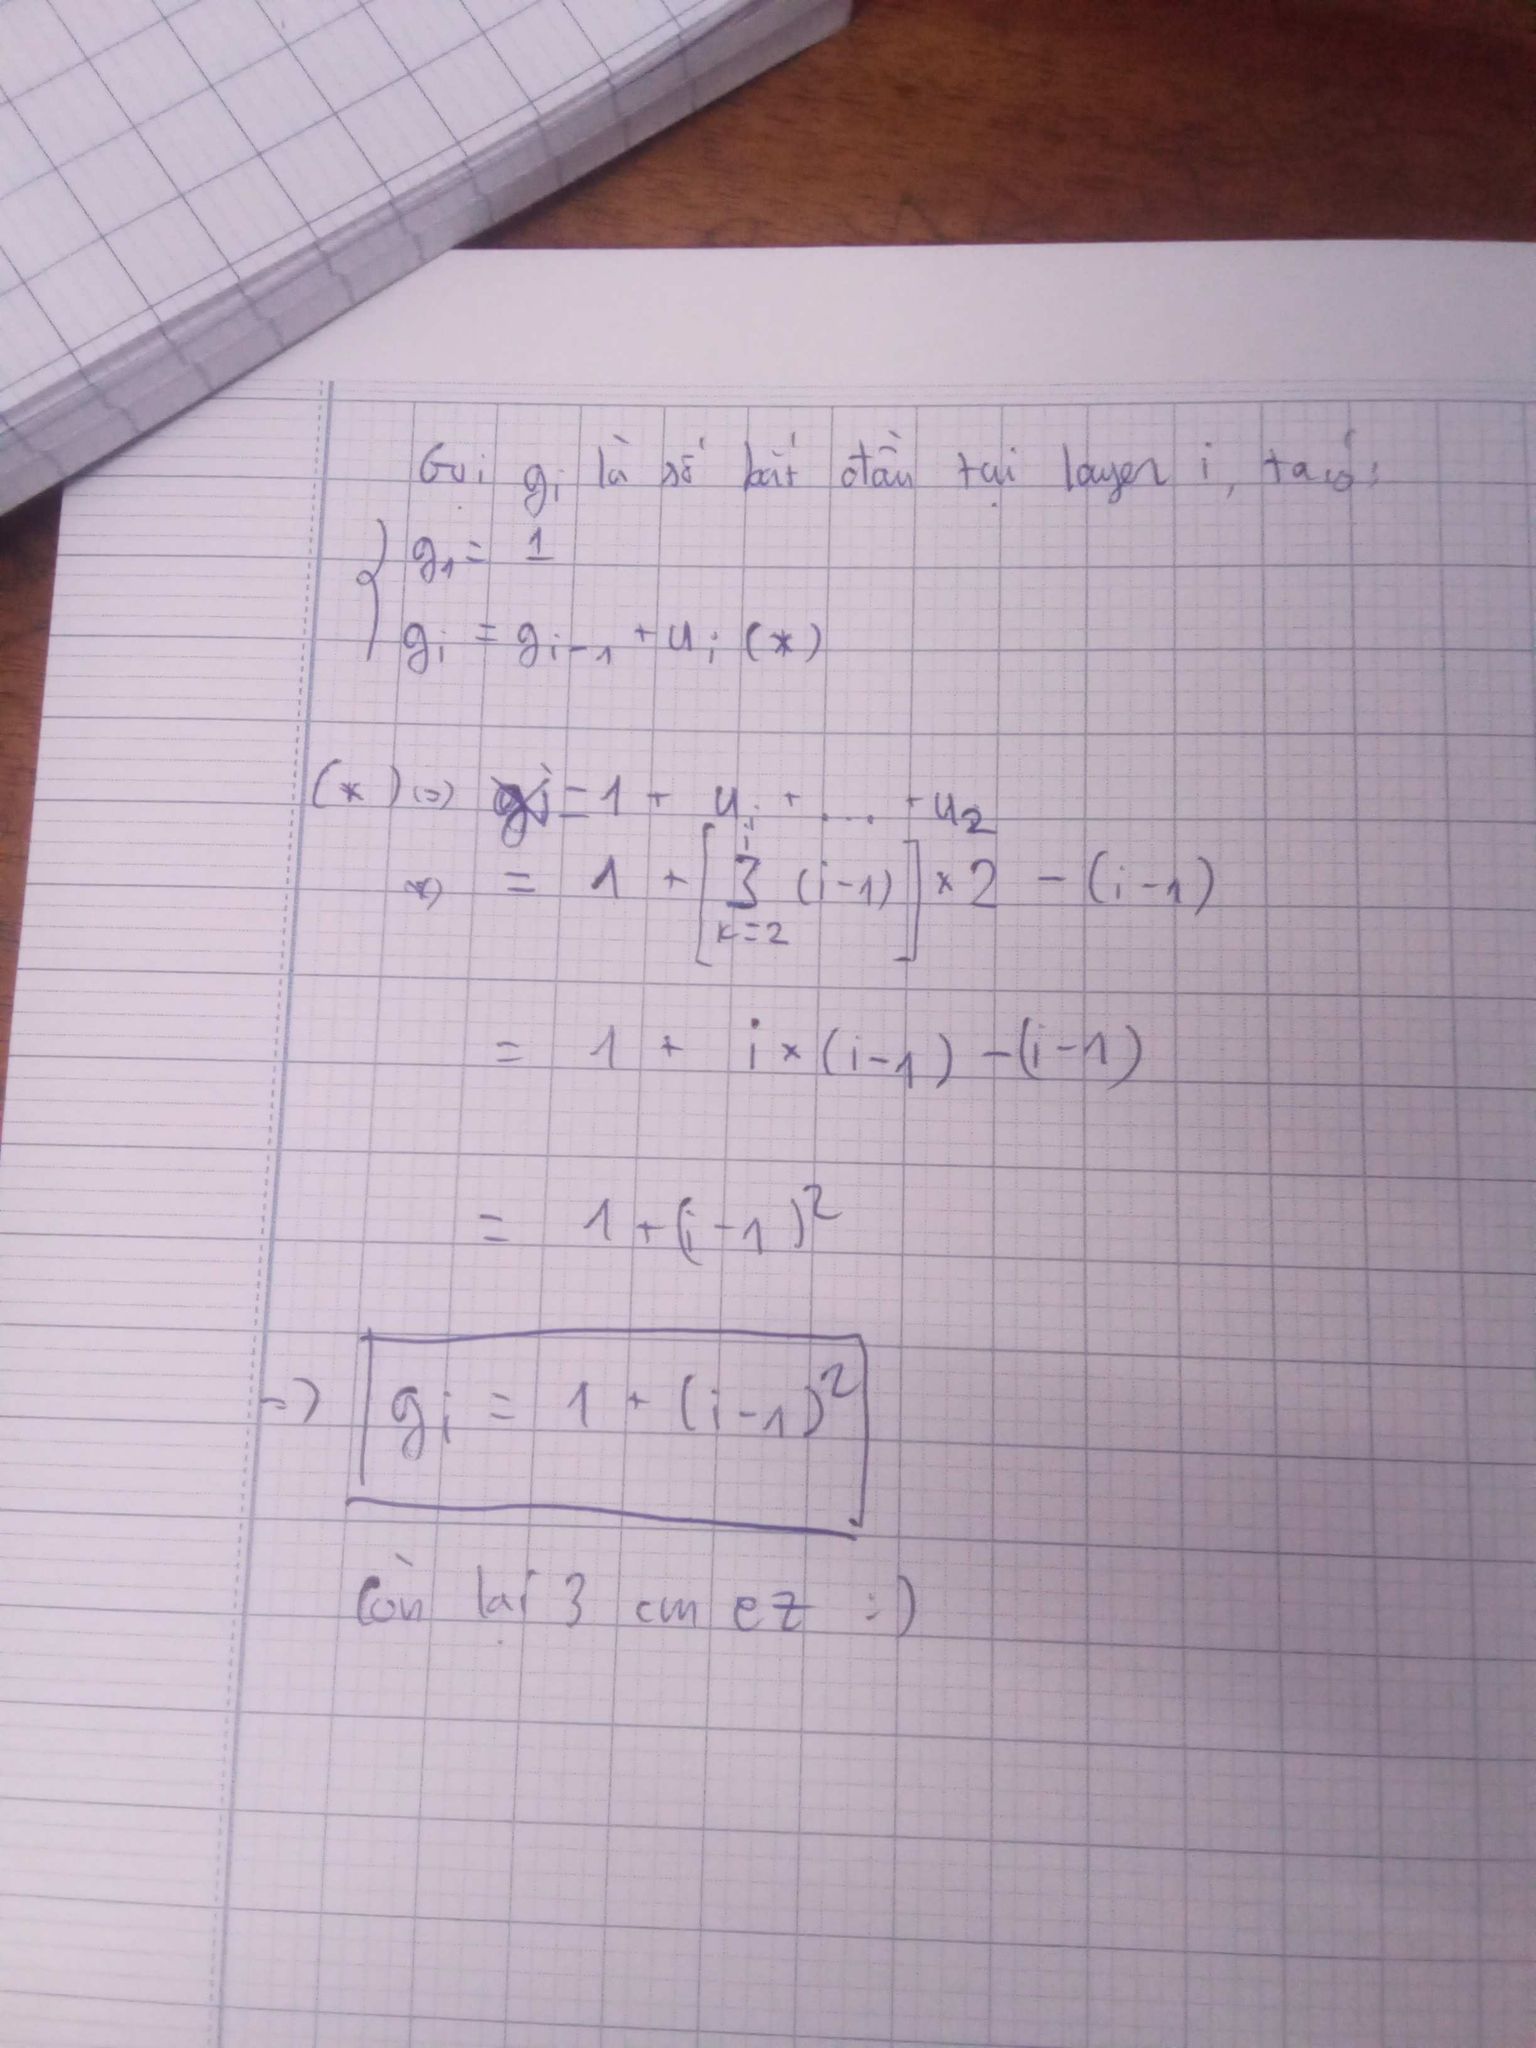 Gọi gi là số bắt đầu tại layer i, ta có:
g1 = 1
gi = gi-1 + ui (*)
(*) (=) gi = 1 + ui + ... + u2
= 1 + [ Σ i k=2 (i-1) ] * 2 - (i-1)
= 1 + i * (i-1) - (i-1)
= 1 + (i-1)²
=) gi = 1 + (i-1)²
Còn lại 3 cm ez :)